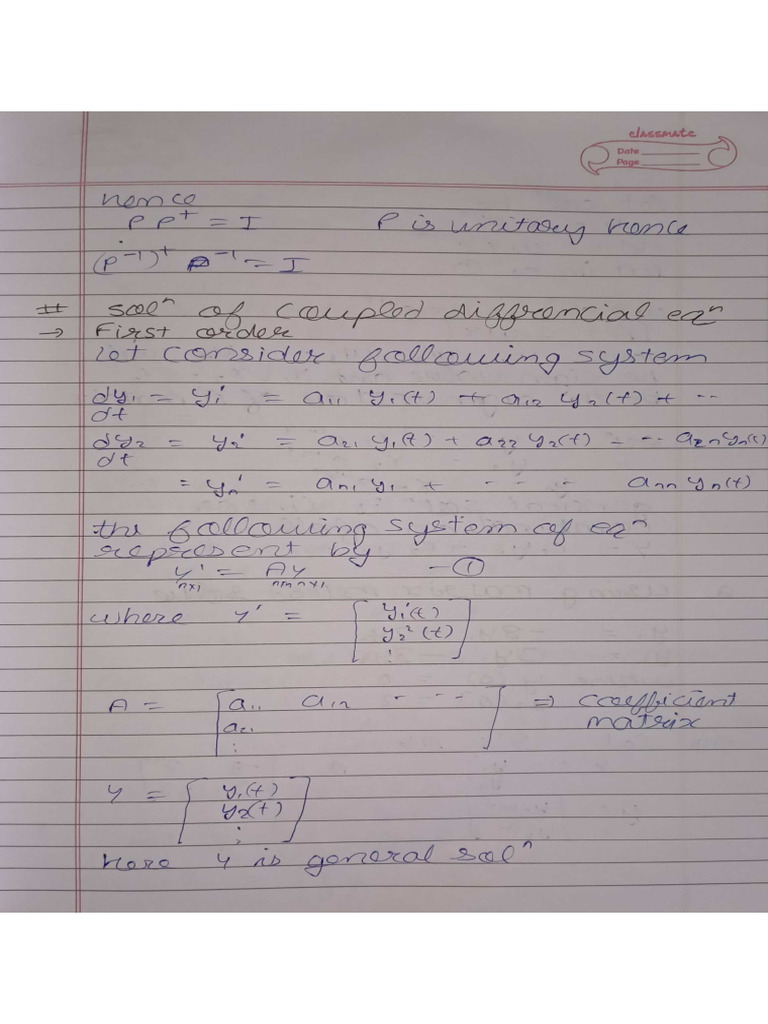 classmate
Date
Page
hence
P P⁺ = I P is unitary hence
(P⁻¹)⁺ P⁻¹ = I
# solⁿ of coupled diffrencial eqⁿ
→ First order
let consider following system
dy₁/dt = y₁' = a₁₁ y₁(t) + a₁₂ y₂(t) + --
dy₂/dt = y₂' = a₂₁ y₁(t) + a₂₂ y₂(t) - -- a₂ₙyₙ(t)
= yₙ' = aₙ₁ y₁ + - - - - aₙₙ yₙ(t)
the following system of eqⁿ
represent by
Y' = AY - ①
n×1 n×n n×1
where Y' = [ y₁'(t)
y₂²(t)
⋮ ]
A = [ a₁₁ a₁₂ - - - - ] ⇒ coefficient
a₂₁ matrix
⋮
Y = [ y₁(t)
y₂(t)
⋮ ]
here Y is general solⁿ